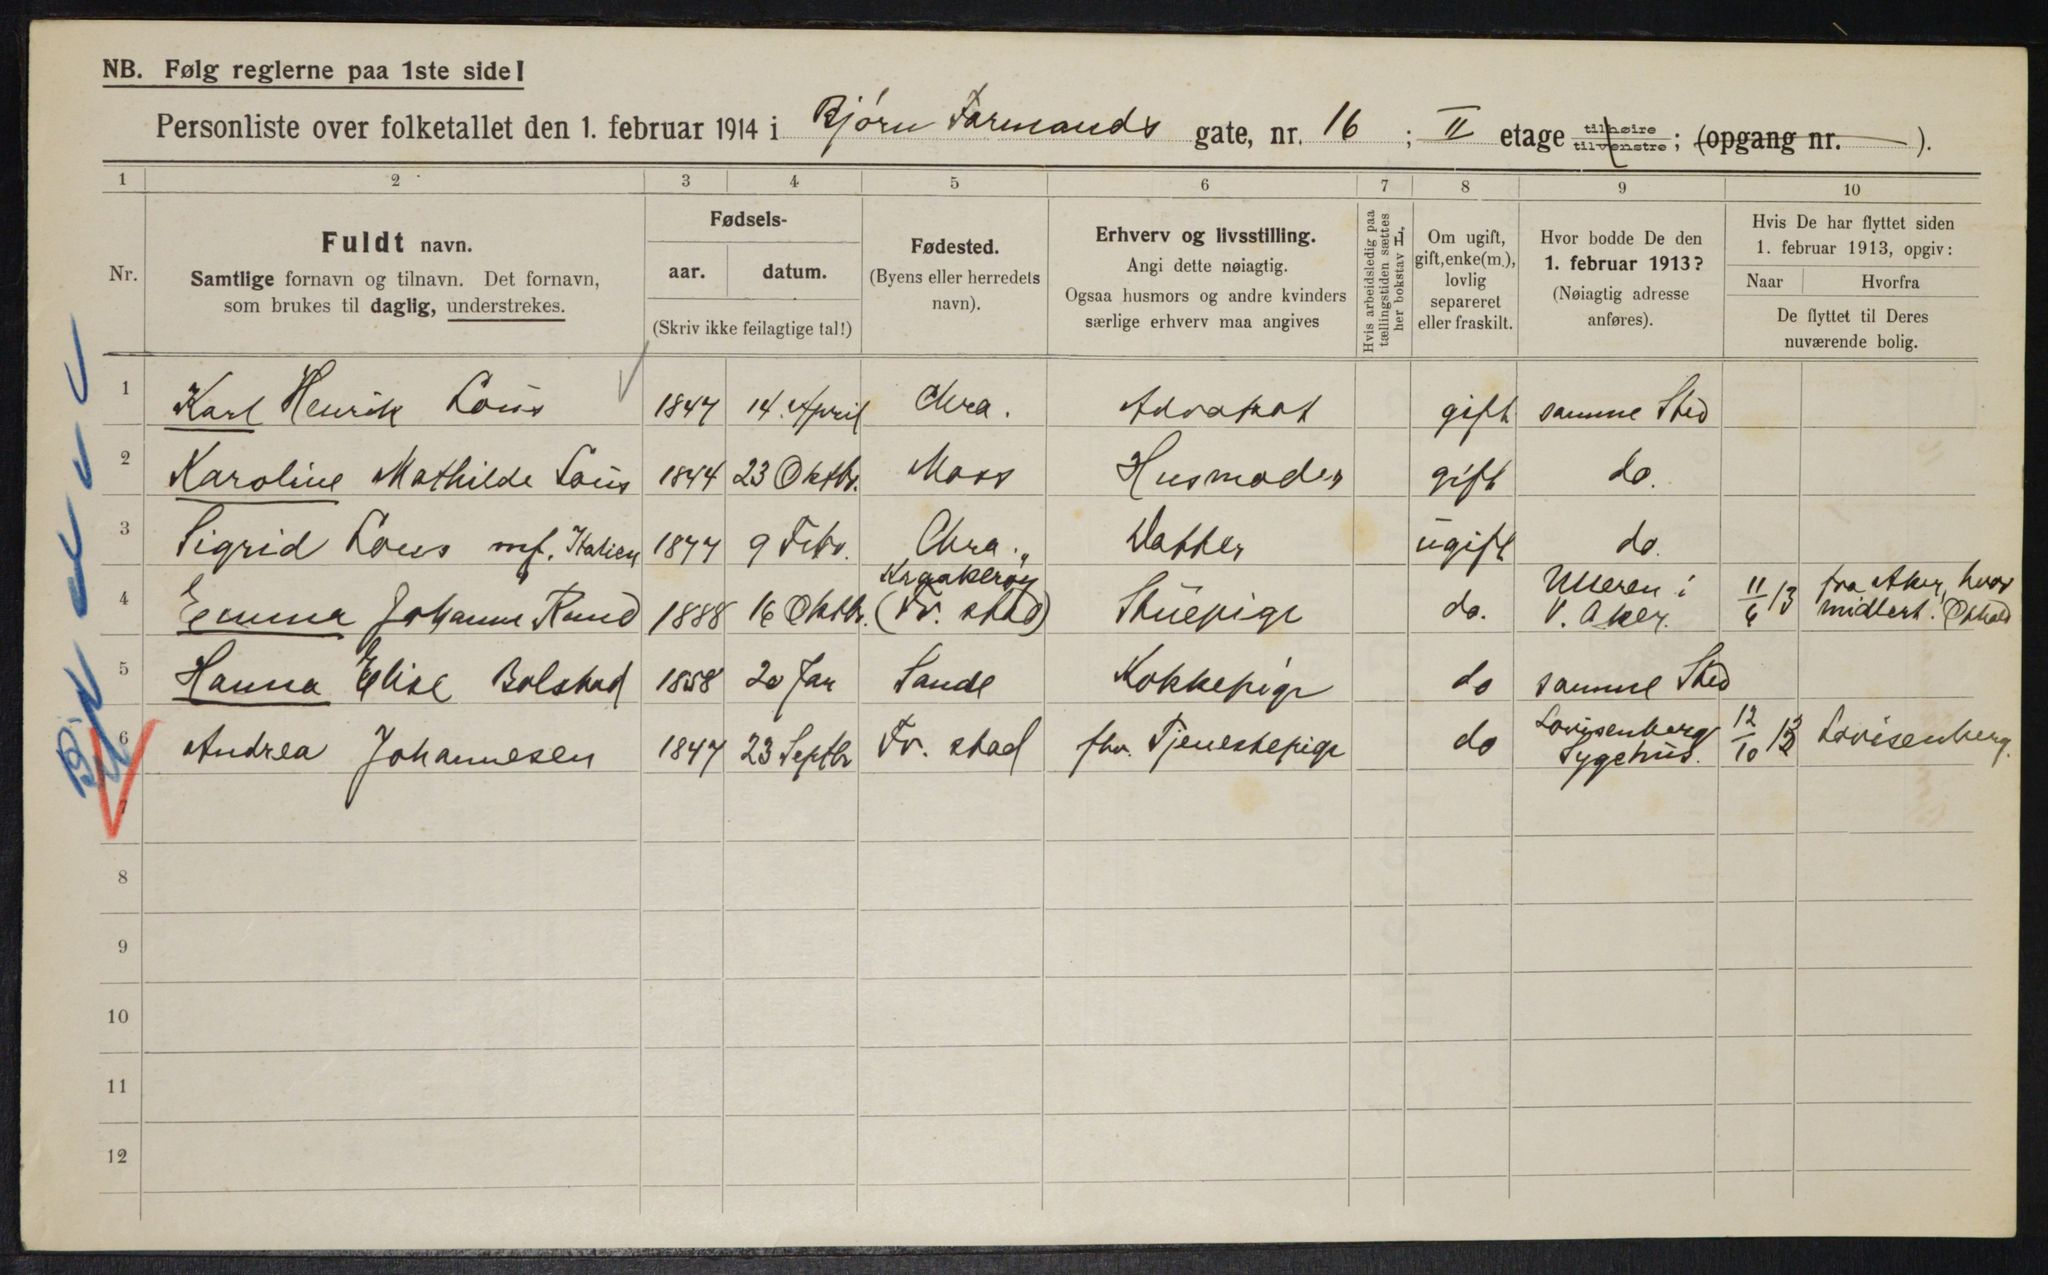 NB. Følg reglerne paa 1ste side!
Personliste over folketallet den 1. februar 1914 i Bjørn Farmands gate, nr. 16 ; II etage tilhøire tilvenstre ; (opgang nr. ).
1 2 3 4 5 6 7 8 9 10
Nr.
Fuldt navn.
Samtlige fornavn og tilnavn. Det fornavn,
som brukes til daglig, understrekes.
Fødsels-
aar. datum.
(Skriv ikke feilagtige tal!)
Fødested.
(Byens eller herredets
navn).
Erhverv og livsstilling.
Angi dette nøiagtig.
Ogsaa husmors og andre kvinders
særlige erhverv maa angives
Hvis arbeidsledig paa
tællingstiden sættes
her bokstav L.
Om ugift,
gift, enke(m.),
lovlig
separeret
eller fraskilt.
Hvor bodde De den
1. februar 1913?
(Nøiagtig adresse
anføres).
Hvis De har flyttet siden
1. februar 1913, opgiv:
Naar Hvorfra
De flyttet til Deres
nuværende bolig.
1 Karl Henrik Lous 1847 14. April Chra. Advokat gift samme Sted
2 Karoline Mathilde Lous 1844 23 Oktbr. Moss Husmoder gift do.
3 Sigrid Lous mf. Italien 1877 9 Febr. Chra. Datter ugift do.
4 Emma Johanne Rund 1888 16 Oktbr. Kraakerøy (Fr. stad) Stuepige do. Ulleren i V. Aker. 11/6 13 fra Aker, hvor midlert. Ophold
5 Hanna Elise Bolstad 1858 20 Jan Sande Kokkepige do samme Sted
6 Andrea Johannesen 1847 23 Septbr Fr. stad fhv. Tjenestepige do Lovisenberg Sygehus. 12/10 13 Lovisenberg.
7
8
9
10
11
12